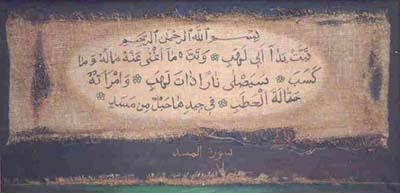 بسم الله الرحمن الرحيم
تبت يدا أبي لهب ❊ وتب ما أغنى عنه ماله وما
كسب ❊ سيصلى نارا ذات لهب ❊ وامرأته
حمالة الحطب ❊ في جيدها حبل من مسد ❊
سورة المسد